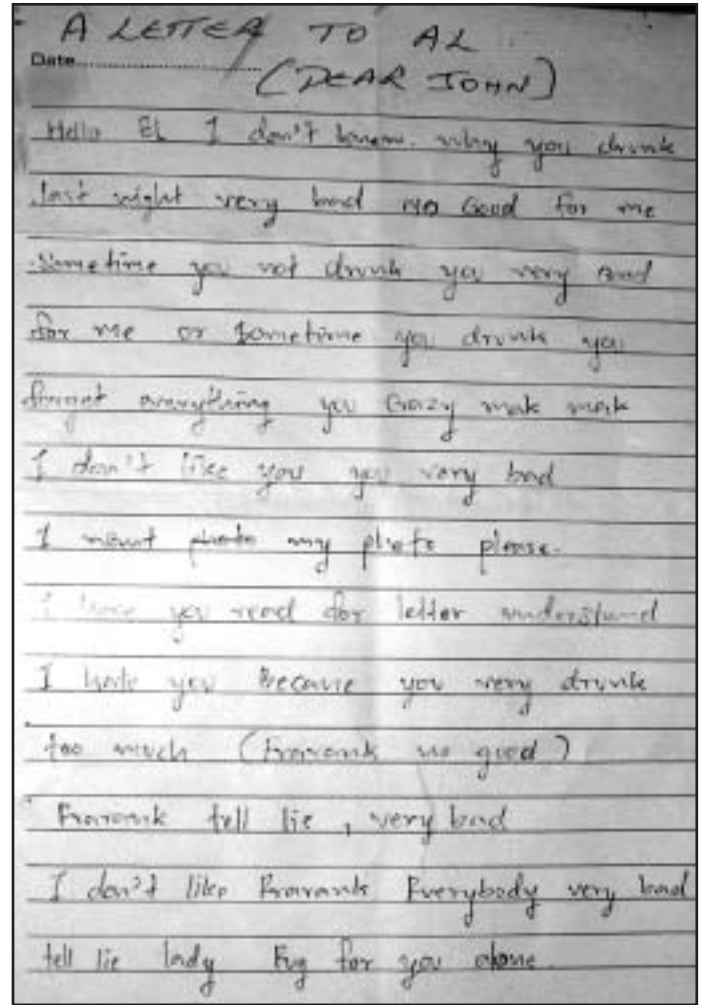 A LETTER TO AL
Date
(DEAR JOHN)
Hello EL I don't know. why you drunk
last night very bad NO Good for me
Sometime you not drunk you very
for me or Sometime you drunk you
forget everything you Crazy mak mak
I don't like you you very bad
I want photo my photo please.
I hope you read for letter understand
I hate you Because you very drunk
too much ( no good )
tell lie , very bad
I don't like Everybody very bad
tell lie lady for you alone.